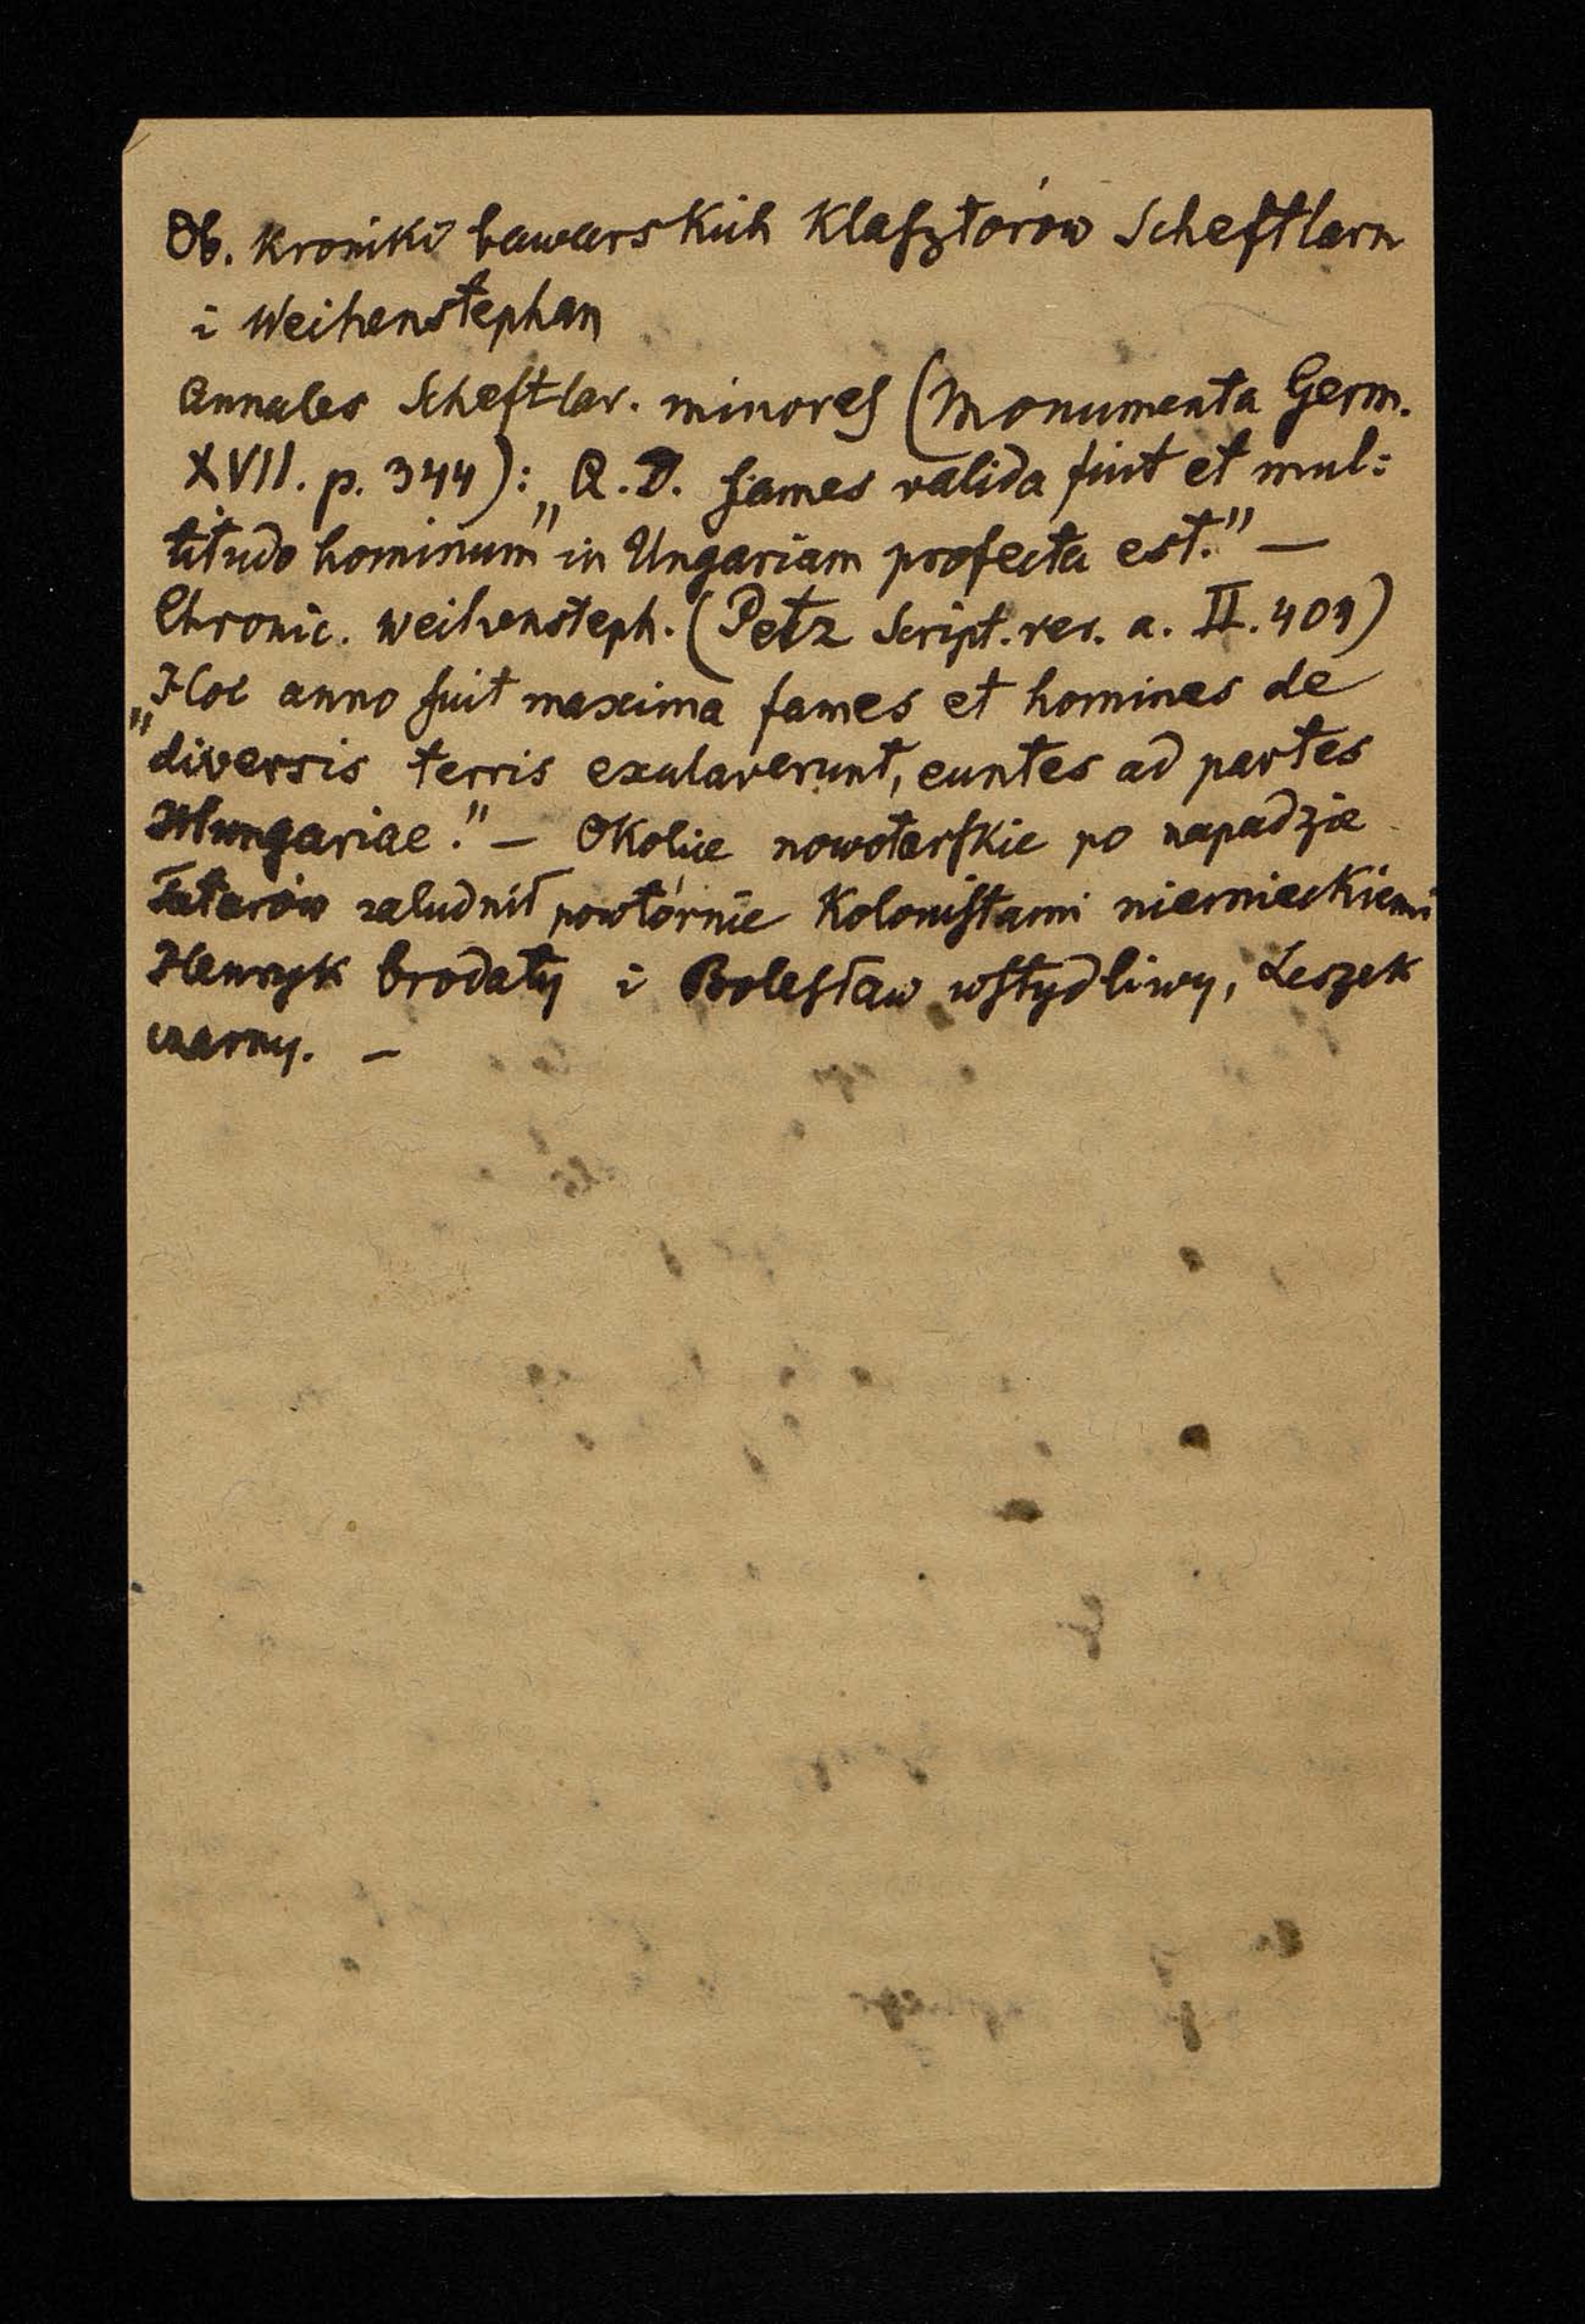 Ob. Kroniki bawarskich Klasztorów Scheftlarn
i Weihenstephan
Annales Scheftlar. minores (Monumenta Germ.
XVII. p. 344): „Q.D. fames valida fuit et mul:
titudo hominum" in Ungariam profecta est." —
Chronic. Weihensteph. (Petz Script. rer. a. II. 404)
„Hoc anno fuit maxima fames et homines de
"diversis terris exularerunt, euntes ad partes
Hungariae." — Okolice nowotarskie po napadzie
Tatarów zaludnił powtórnie Kolonistami niemieckiemi
Henryk brodaty i Bolesław wstydliwy, Leszek
czarny. —